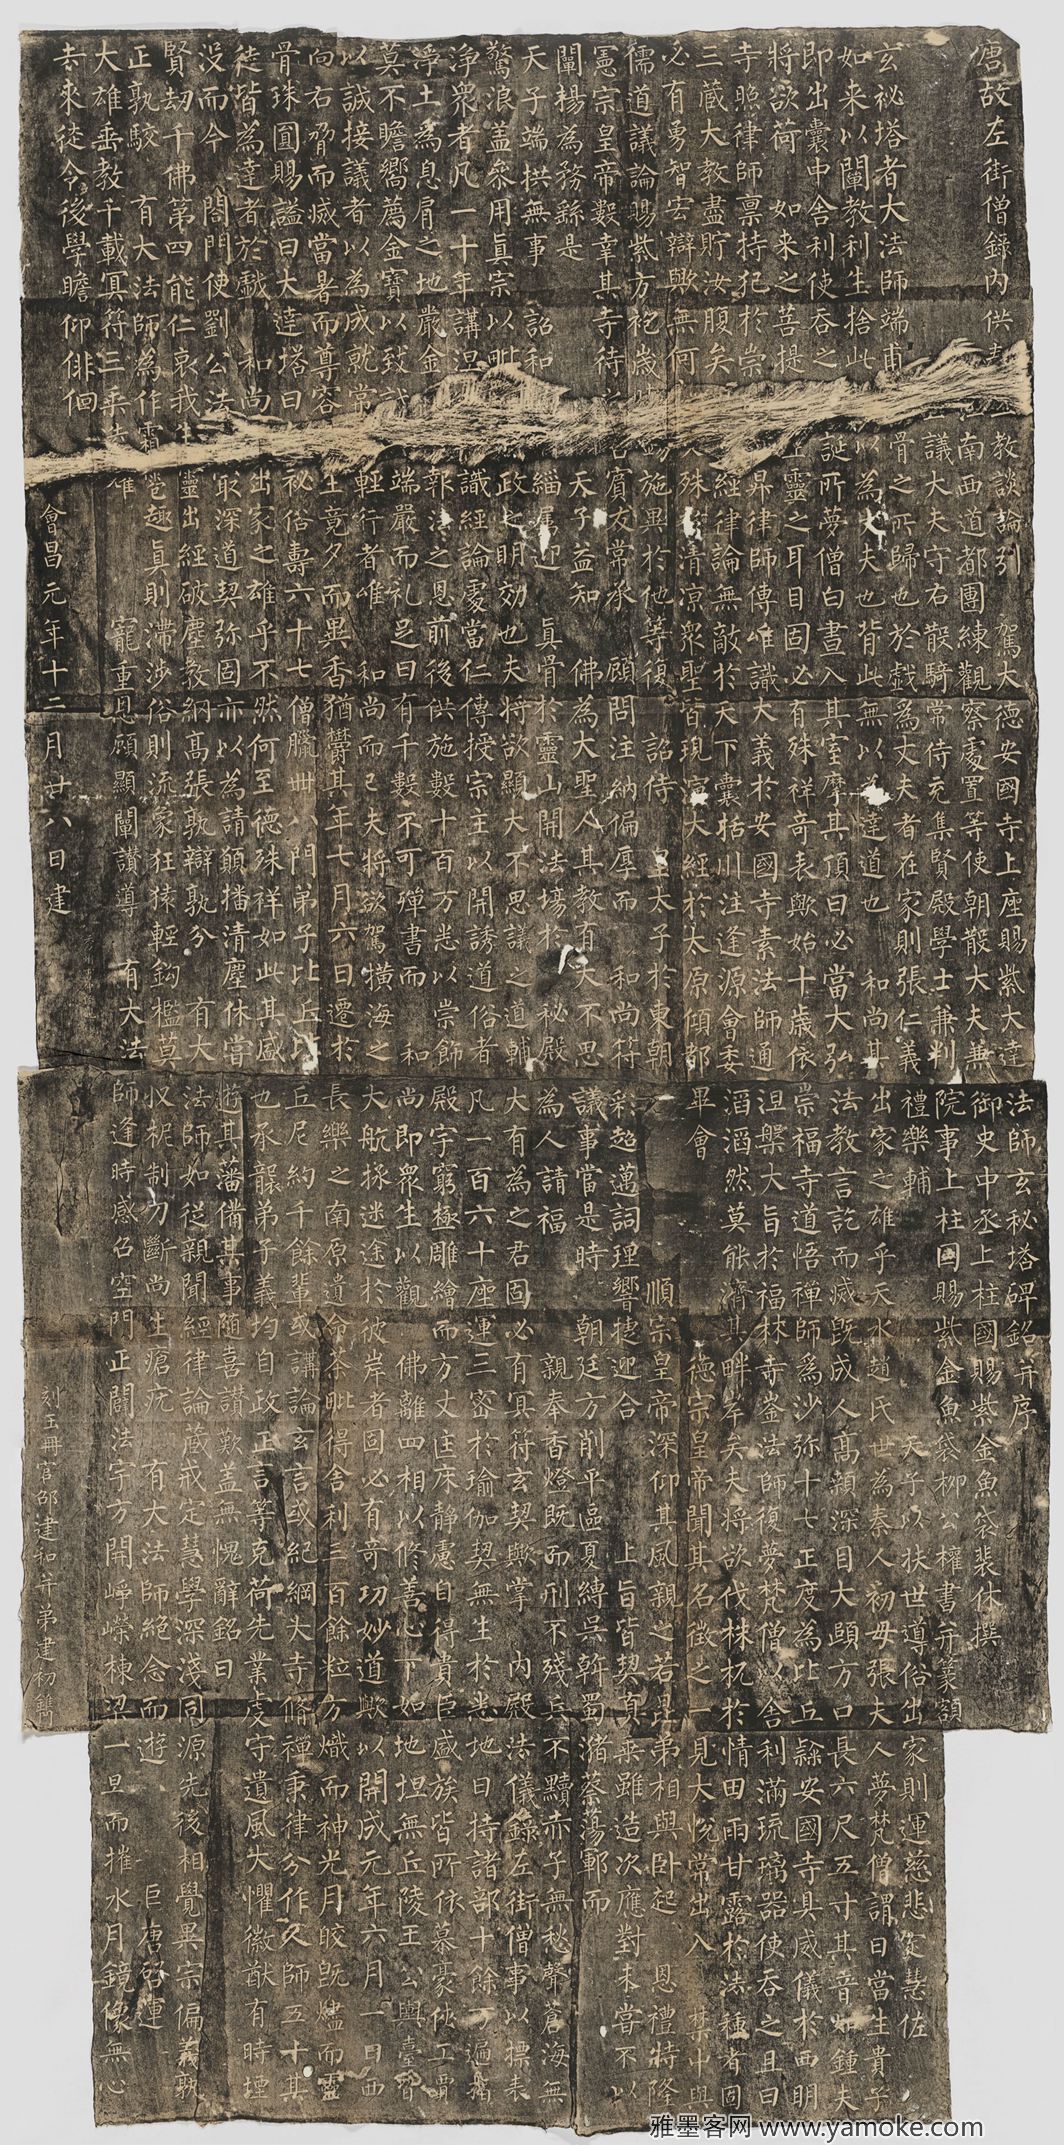 唐故左街僧錄內供教談論引 駕大德安國寺上座賜紫大達法師玄秘塔碑銘并序
南西道都團練觀察處置等使朝散大夫兼御史中丞上柱國賜紫金魚袋裴休撰
議大夫守右散騎常侍充集賢殿學士兼判院事上柱國賜紫金魚袋柳公權書并篆額
玄祕塔者大法師端甫骨之所歸也於戲為丈夫者在家則張仁義禮樂輔 天子以扶世導俗出家則運慈悲定慧佐
如來以闡教利生捨此以為丈夫也背此無以為達道也 和尚其出家之雄乎天水趙氏世為秦人初母張夫人夢梵僧謂曰當生貴子
即出囊中舍利使吞之誕所夢僧白晝入其室摩其頂曰必當大弘法教言訖而滅既成人高顙深目大頤方口長六尺五寸其音如鍾夫
將欲荷 如来之菩提靈之耳目固必有殊祥奇表歟始十歲依崇福寺道悟禪師為沙弥十七正度為比丘隸安國寺具威儀於西明
寺照律師稟持犯於崇昇律師傳唯識大義於安國寺素法師通涅槃大旨於福林寺崟法師復夢梵僧以舍利滿琉璃器使吞之且曰
三藏大教盡貯汝腹矣經律論無敵於天下囊括川注逢源會委滔滔然莫能濟其畔岸矣夫將欲伐株杌於情田雨甘露於法種者固
必有勇智宏辯歟無何殊清涼眾聖皆現演大經於太原傾都畢會 德宗皇帝聞其名徵之一見大悅常出入 禁中與
儒道議論賜紫方袍歲錫施異於他等復 詔侍 皇太子於東朝 順宗皇帝深仰其風親之若昆弟相與卧起 恩禮特隆
憲宗皇帝數幸其寺待賓友常承 顧問注納偏厚而 和尚符彩超邁詞理響捷迎合 上旨皆契真乘雖造次應對未嘗不以
闡揚為務繇是 天子益知 佛為大聖人其教有大不思議事當是時 朝廷方削平區夏縛吳斡蜀瀦蔡蕩鄆而
天子端拱無事 詔和緇屬迎 真骨於靈山開法場於 秘殿為人請福 親奉香燈既而刑不殘兵不黷赤子無愁聲蒼海無
驚浪盖參用真宗以毗政之明効也夫將欲顯大不思議之道輔大有為之君固必有冥符玄契歟掌 內殿法儀錄左街僧事以標表
淨眾者凡一十年講涅識經論處當仁傳授宗主以開誘道俗者凡一百六十座運三密於瑜伽契無生於悉地日持諸部十餘万遍指
淨土為息肩之地嚴金報法之恩前後供施數十百万悉以崇飾殿宇窮極雕繪而方丈匡床靜慮自得貴臣盛族皆所依慕豪俠工賈
莫不瞻嚮薦金寶以致誠端嚴而礼足日有千數不可殫書而 和尚即眾生以觀佛離四相以修善心下如地坦無丘陵王公輿臺皆
以誠接議者以為成就常輕行者唯 和尚而已夫將欲駕橫海之大航拯迷途於彼岸者固必有奇功妙道歟以 開成元年六月一日西
向右脅而滅當暑而尊容生竟夕而異香猶鬱其年七月六日遷於長樂之南原遺命荼毗得舍利三百餘粒方熾而神光月皎既燼而靈
骨珠圓賜謚曰大達塔曰祕俗壽六十七僧臘卌八門弟子比丘比丘尼約千餘輩或講論玄言或紀綱大寺脩禪秉律分作人師五十其
徒皆為達者於戲 和尚出家之雄乎不然何至德殊祥如此其盛也承襲弟子義均自政正言等克荷先業虔守遺風大懼徽猷有時堙
沒而今 閤門使劉公法冣深道契弥固亦以為請願播清塵休嘗遊其藩備其事隨喜讚歎盖無愧辭銘曰
賢劫千佛第四能仁哀我生靈出經破塵教網高張孰辯孰分 有大法師如從親聞經律論藏戒定慧學深淺同源先後相覺異宗偏義孰
正孰駮 有大法師為作霜雹趣真則滯涉俗則流象狂猿輕鈎檻莫收柅制刀斷尚生瘡疣 有大法師絕念而遊 巨唐啟運
大雄垂教千載冥符三乘耀 寵重恩顧顯闡讚導 有大法師逢時感召空門正闢法宇方開崢嶸棟梁一旦而摧水月鏡像無心
去來徒令後學瞻仰徘徊
會昌元年十二月廿八日建
刻玉冊官邵建和并弟建初鐫
雅墨客网 www.yamoke.com